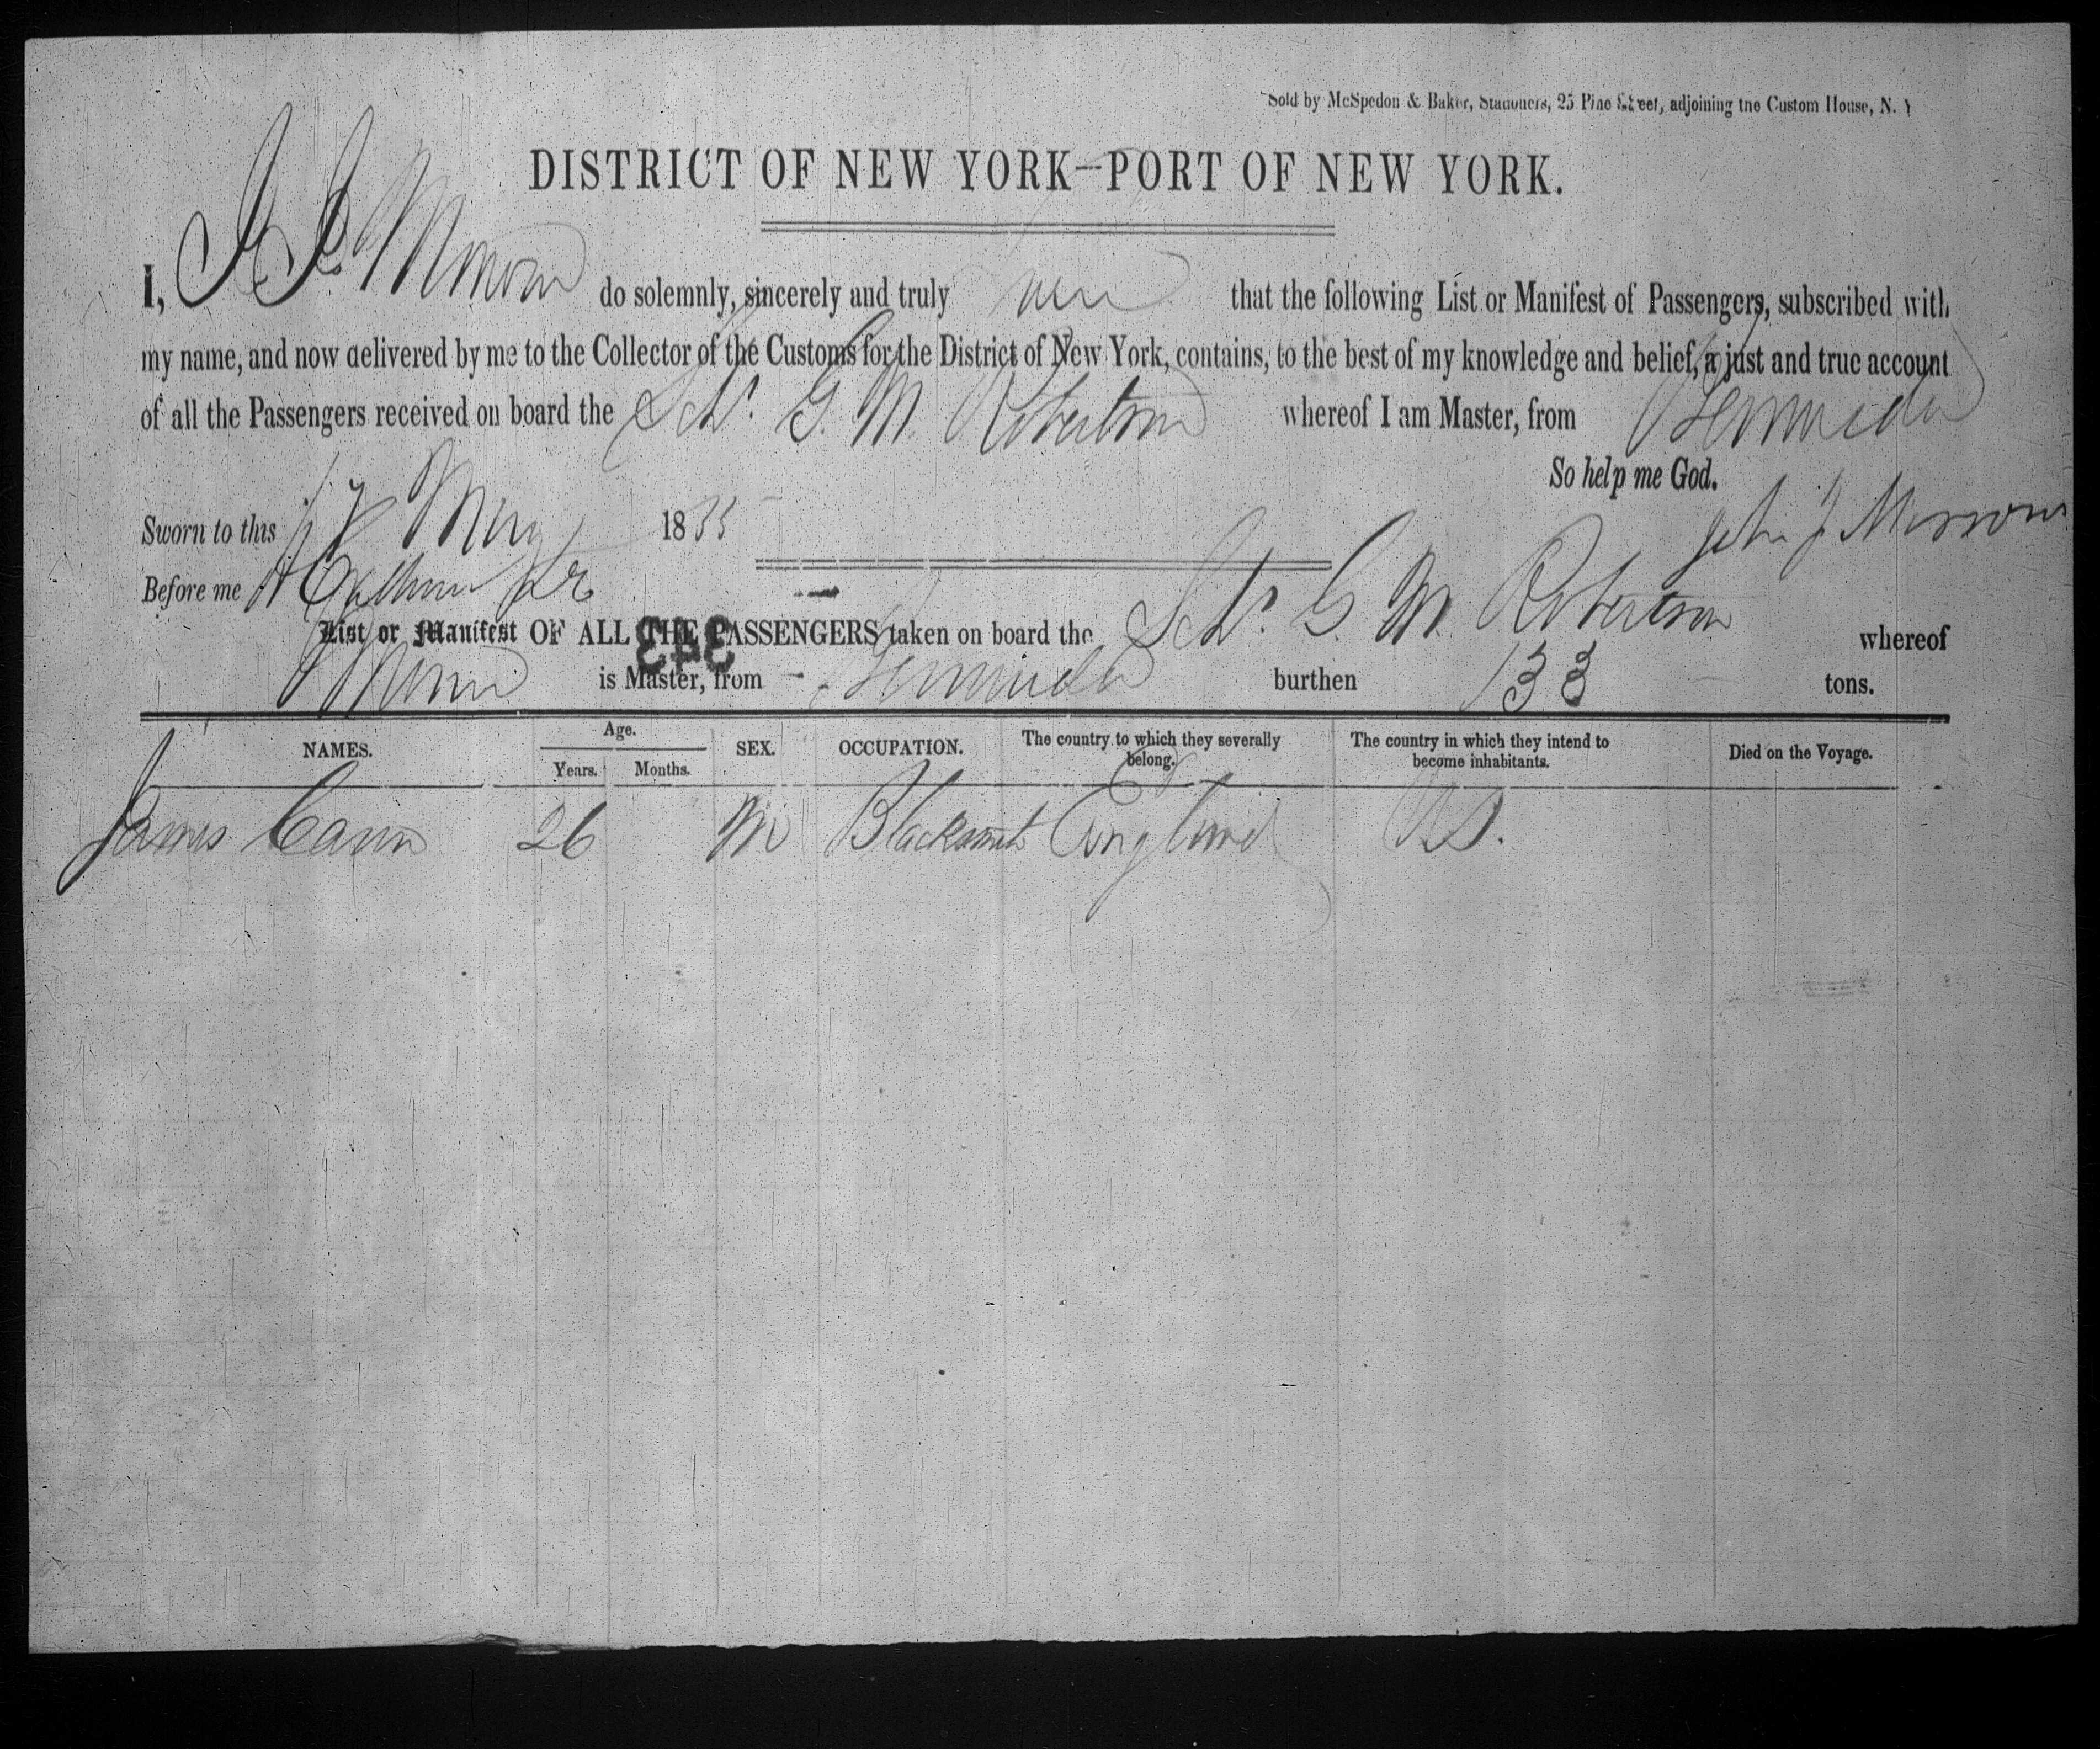 Sold by McSpedon & Baker, Stationers, 25 Pine Street, adjoining the Custom House, N. Y
DISTRICT OF NEW YORK—PORT OF NEW YORK.
I, J J Morrow do solemnly, sincerely and truly that the following List or Manifest of Passengers, subscribed with
my name, and now delivered by me to the Collector of the Customs for the District of New York, contains, to the best of my knowledge and belief, a just and true account
of all the Passengers received on board the Schr. G. M. Robertson whereof I am Master, from Bermuda
So help me God.
Sworn to this 17 May 1855
John J Morrow
Before me
List or Manifest OF ALL THE PASSENGERS taken on board the Schr. G. M. Robertson whereof
is Master, from Bermuda burthen 133 tons.
343
NAMES. Age. Years. Months. SEX. OCCUPATION. The country to which they severally belong. The country in which they intend to become inhabitants. Died on the Voyage.
James Cann 26 M Blacksmith England US.